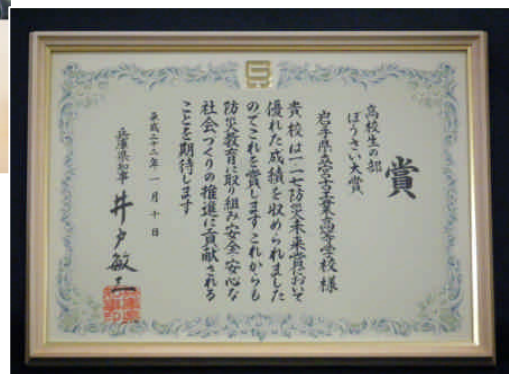 賞
高校生の部
ぼうさい大賞
岩手県立宮古工業高等学校様
貴校は一・一七防災未来賞において
優れた成績を収められました
のでこれを賞しますこれからも
防災教育に取り組み安全安心な
社会づくりの推進に貢献される
ことを期待します
平成二十二年一月十日
兵庫県知事 井戸敏三